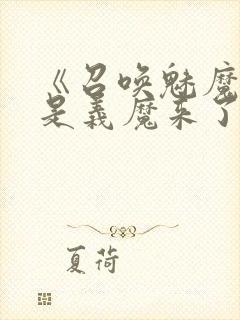 《召唤魅魔
是义魔来了
夏荷